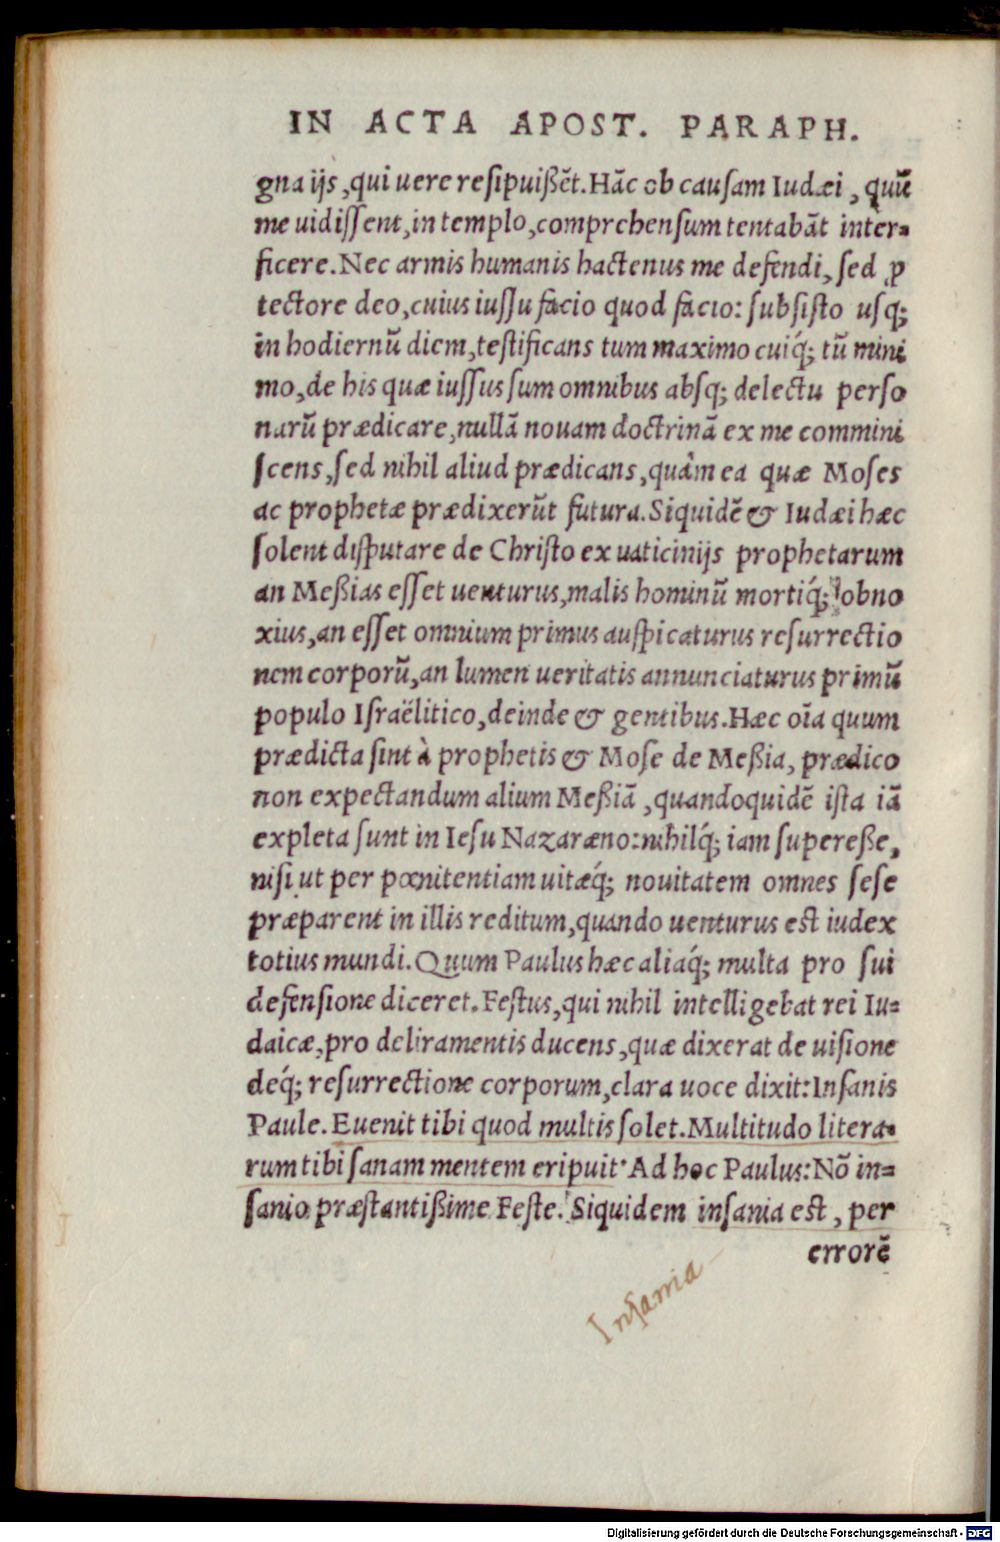 IN ACTA APOST. PARAPH.
gna ijs, qui uere resipuißẽt. Hãc ob causam Iudæi, quũ
me uidissent, in templo, comprehensum tentabãt inter-
ficere. Nec armis humanis hactenus me defendi, sed ꝓ
tectore deo, cuius iussu facio quod facio: subsisto usq;
in hodiernũ diem, testificans tum maximo cuiq́; tũ mini
mo, de his quæ iussus sum omnibus absq; delectu perso
narũ prædicare, nullã nouam doctrinã ex me commini
scens, sed nihil aliud prædicans, quàm ea quæ Moses
ac prophetæ prædixerũt futura. Siquidẽ & Iudæi hæc
solent disputare de Christo ex uaticinijs prophetarum
an Meßias esset uenturus, malis hominũ mortiq́; obno
xius, an esset omnium primus auspicaturus resurrectio
nem corporũ, an lumen ueritatis annunciaturus primũ
populo Israëlitico, deinde & gentibus. Hæc oĩa quum
prædicta sint à prophetis & Mose de Meßia, prædico
non expectandum alium Meßiã, quandoquidẽ ista iã
expleta sunt in Iesu Nazaræno: nihilq́; iam supereße,
nisi ut per pœnitentiam uitæq́; nouitatem omnes sese
præparent in illis reditum, quando uenturus est iudex
totius mundi. Quum Paulus hæc aliaq́; multa pro sui
defensione diceret. Festus, qui nihil intelligebat rei Iu-
daicæ, pro deliramentis ducens, quæ dixerat de uisione
deq́; resurrectione corporum, clara uoce dixit: Insanis
Paule. Euenit tibi quod multis solet. Multitudo litera-
rum tibi sanam mentem eripuit. Ad hoc Paulus: Nõ in-
sanio præstantißime Feste. Siquidem insania est, per
errorẽ
Insania
Digitalisierung gefördert durch die Deutsche Forschungsgemeinschaft - DFG